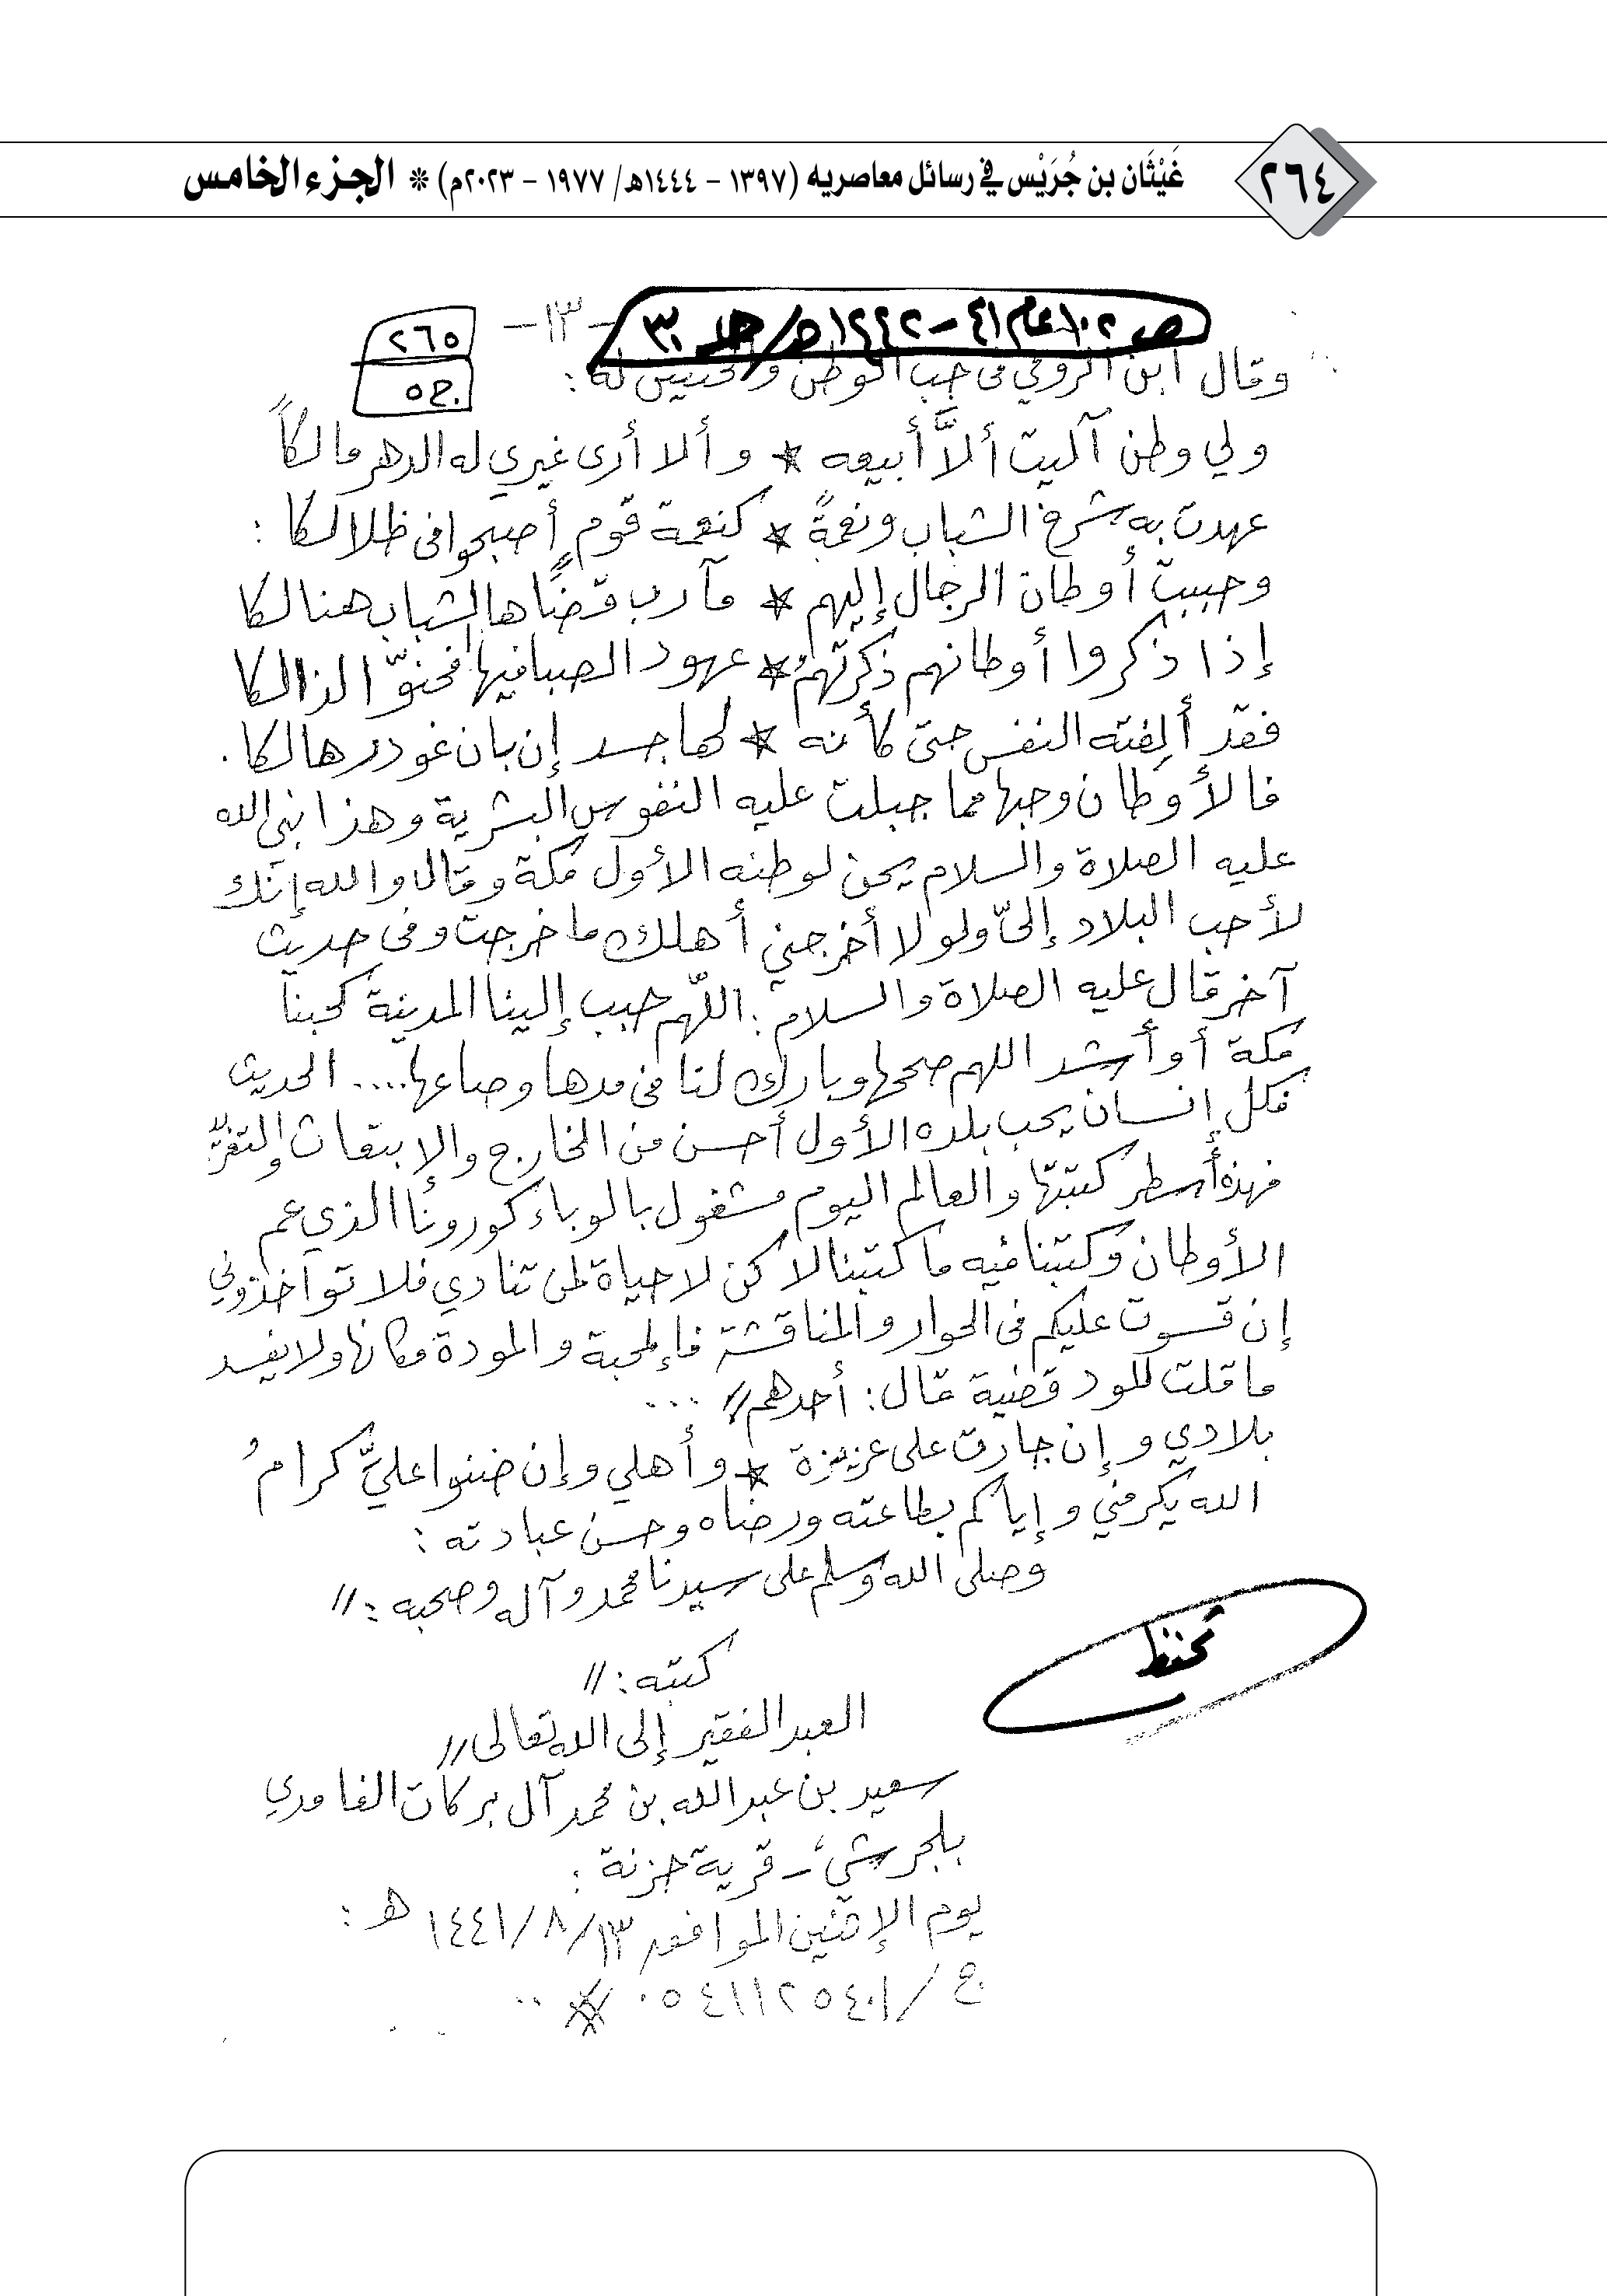 ٢٦٤
غَيْثَان بن جُرَيْس في رسائل معاصريه (١٣٩٧ - ١٤٤٤هـ/ ١٩٧٧ - ٢٠٢٣م) * الجزء الخامس
ص ١٠٢ عام ٤١-١٤٤٢هـ/ جـ ٣٠
-١٣-
٢٦٥
ج ٥
وقال ابن الرومي في حب الوطن والحنين له:
ولي وطن آليت ألاَّ أبيعه * وألا أرى غيري له الدهر مالكاً
عهدت به شرخ الشباب ونعمةً * كنعمة قومٍ أصبحوا في ظلالكا :
وحببت أوطان الرجال إليهم * مآرب قضاها الشباب هنالكا
إذا ذكروا أوطانهم ذكرتهمُ * عهود الصبا فيها فحنوّا لذالكا
فقد ألفته النفس حتى كأنه * لها جسد إن بان غودر هالكا .
فالأوطان وحبها مما جبلت عليه النفوس البشرية وهذا نبي الله
عليه الصلاة والسلام يحن لوطنه الأول مكة وقال والله إنَّك
لأحب البلاد إليّ ولولا أخرجني أهلك ما خرجت وفي حديث
آخر قال عليه الصلاة والسلام : اللّهم حبب إلينا المدينة كحبنا
مكة أو أشد اللهم صححها وبارك لنا في مدها وصاعها .... الحديث
فكل إنسان يحب بلده الأول أحسن من الخارج والإبتعاث والتغرّب
فهذه أسطر كتبتها والعالم اليوم مشغول بالوباء كورونا الذي عم
الأوطان وكتبنا فيه ما كتبنا لاكن لا حياة لمن تنادي فلا تؤاخذوني
إن قسوت عليكم في الحوار والمناقشة فالمحبة والمودة مكانها ولا يفسد
ما قلت للود قضية قال : أحدهم // ...
بلادي وإن جارت علي عزيزة * وأهلي وإن ضنوا عليَّ كرامُ
الله يكرمني وإياكم بطاعته ورضاه وحسن عبادته :
وصلى الله وسلم على سيدنا محمد وآله وصحبه : //
تحفظ
كتبه : //
العبد الفقير إلى الله تعالى //
سعيد بن عبدالله بن محمد آل بركات الغامدي
بلجرشي - قرية حزنة :
يوم الإثنين الموافق ١٣/٨/١٤٤١ هـ :
ج / ٠٥٤١١٢٥٤٠١